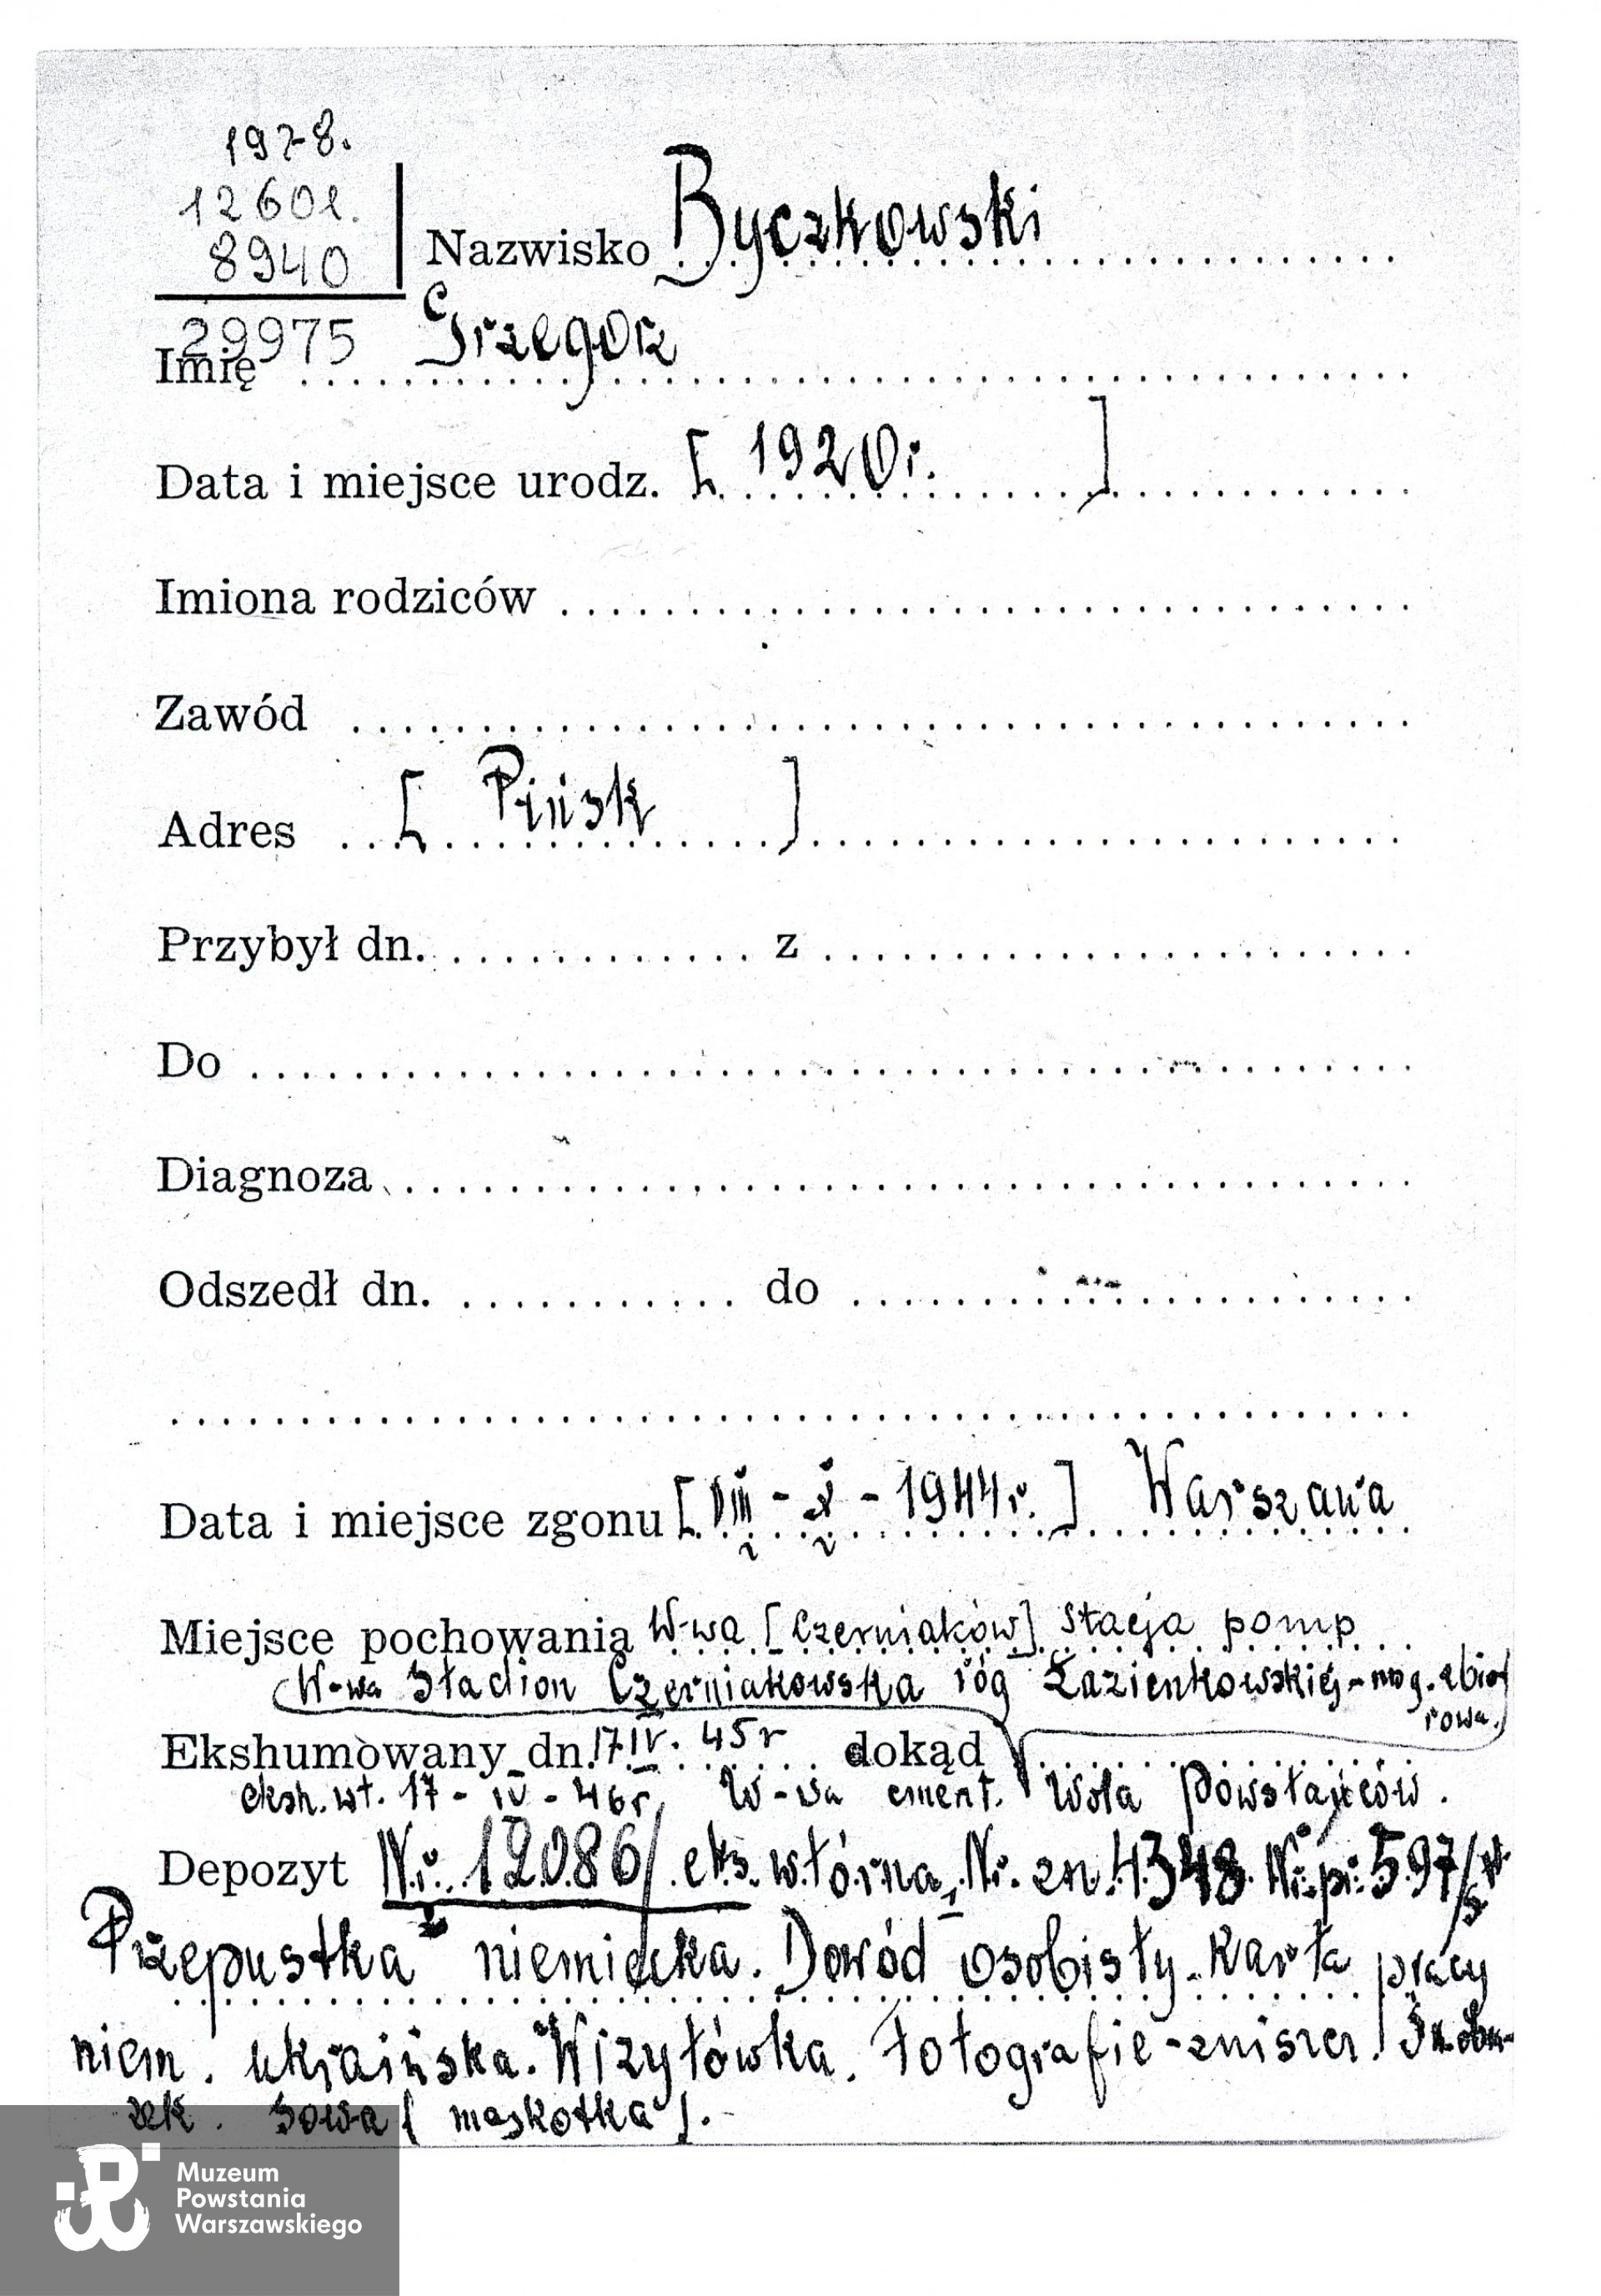 1978.
12601.
8940
29975
Nazwisko Byczkowski
Imię Grzegorz
Data i miejsce urodz. [ 1920r. ]
Imiona rodziców
Zawód
Adres [ Pińsk ]
Przybył dn. z
Do
Diagnoza
Odszedł dn. do
Data i miejsce zgonu [VIII - X - 1944r.] Warszawa
Miejsce pochowania W-wa [Czerniaków] Stacja pomp
(W-wa Stadion Czerniakowska róg Łazienkowskiej - mog. zbio
rowa.)
Ekshumowany dn. 17 IV. 45r dokąd
eksh. wt. 17 - IV - 46r. W-wa cment. Wola Powstańców.
Depozyt Nr. 12086/ eks. wtórna, Nr. zn. 4348 Nr. p. 597/
Przepustka niemiecka. Dowód osobisty. Karta pracy
niem. ukraińska. Wizytówka. Fotografie - zniszcz.
sowa ( maskotka ).
Muzeum
Powstania
Warszawskiego